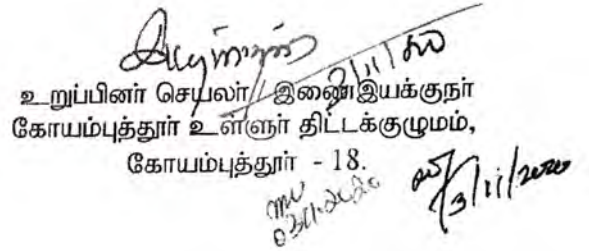 3/11/2020
உறுப்பினர் செயலர் / இணைஇயக்குநர்
கோயம்புத்தூர் உள்ளுர் திட்டக்குழுமம்,
கோயம்புத்தூர் - 18.
03.11.2020
3/11/2020